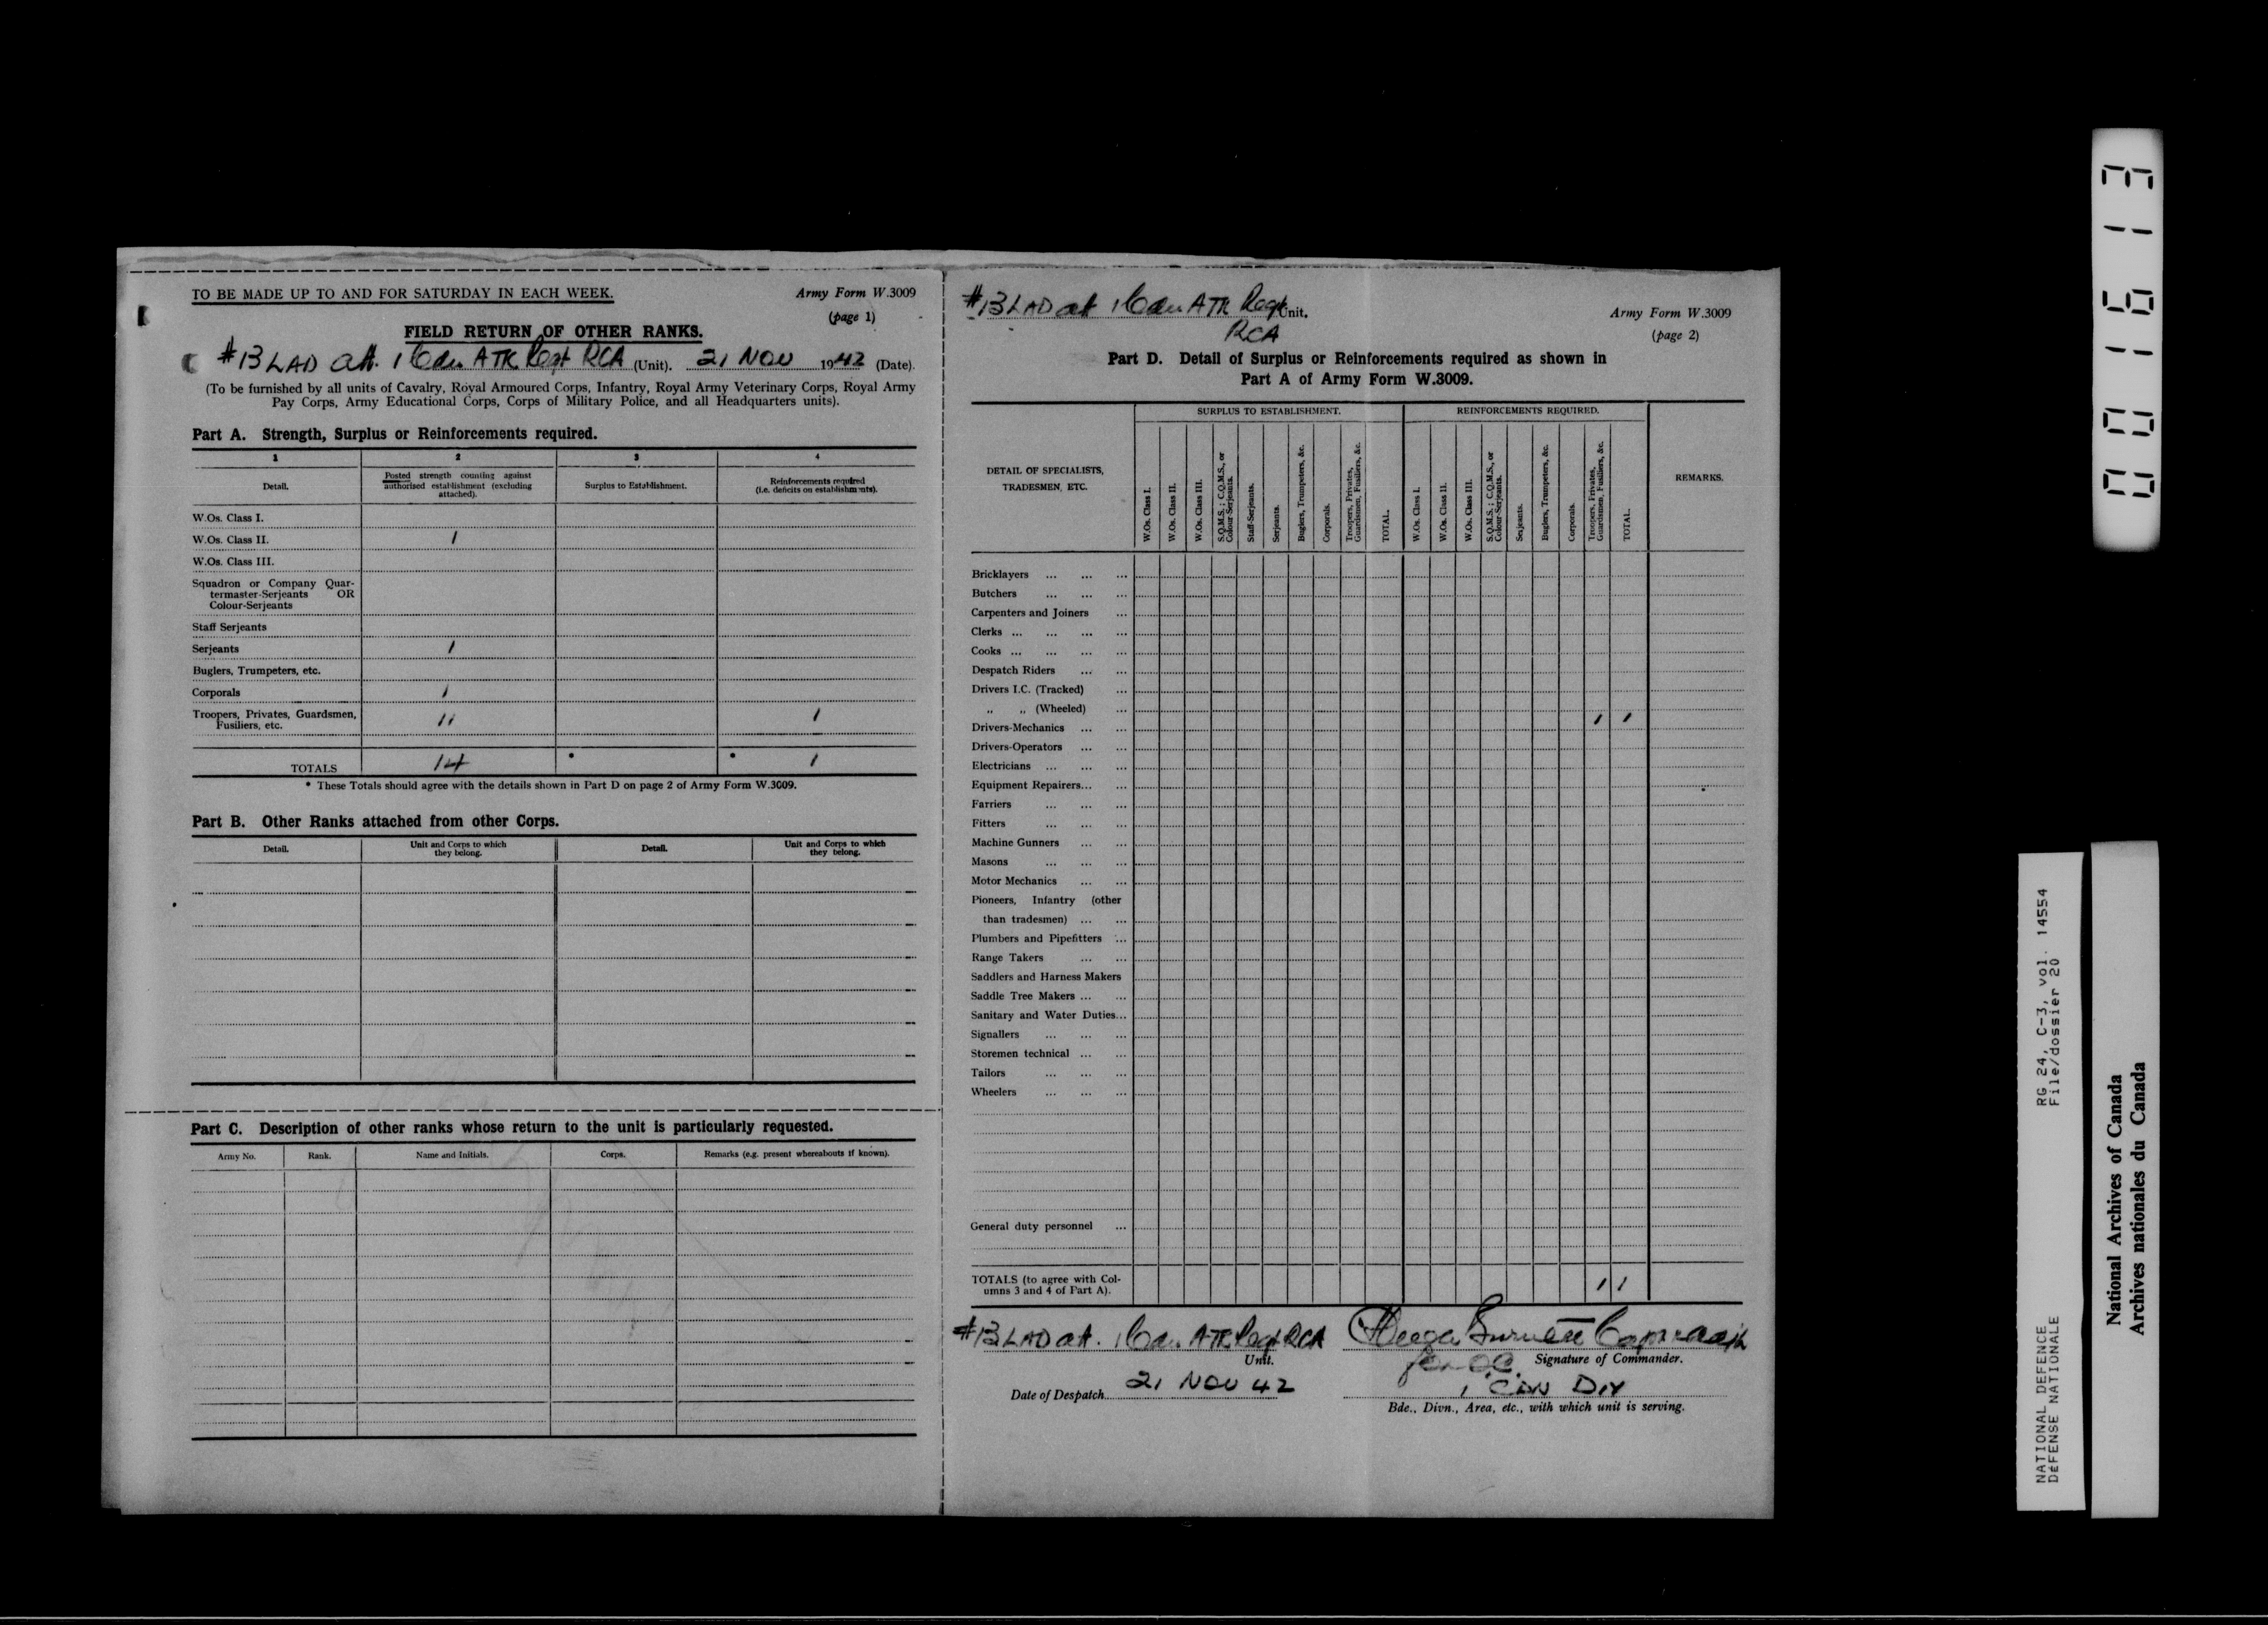 TO BE MADE UP TO AND FOR SATURDAY IN EACH WEEK.
Army Form W.3009
(page 1)
FIELD RETURN OF OTHER RANKS.
#13 LAD att. 1 Cdn. ATK Regt RCA (Unit). 21 NOV 1942 (Date).
(To be furnished by all units of Cavalry, Royal Armoured Corps, Infantry, Royal Army Veterinary Corps, Royal Army
Pay Corps, Army Educational Corps, Corps of Military Police, and all Headquarters units).
Part A. Strength, Surplus or Reinforcements required.
1 2 3 4
Detail.
Posted strength counting against
authorised establishment (excluding
attached).
Surplus to Establishment.
Reinforcements required
(i.e. deficits on establishments).
W.Os. Class I.
W.Os. Class II. 1
W.Os. Class III.
Squadron or Company Quar-
termaster-Serjeants OR
Colour-Serjeants
Staff Serjeants
Serjeants 1
Buglers, Trumpeters, etc.
Corporals 1
Troopers, Privates, Guardsmen, 11 1
Fusiliers, etc.
TOTALS 14 * * 1
* These Totals should agree with the details shown in Part D on page 2 of Army Form W.3009.
Part B. Other Ranks attached from other Corps.
Detail.
Unit and Corps to which
they belong.
Detail.
Unit and Corps to which
they belong.
Part C. Description of other ranks whose return to the unit is particularly requested.
Army No. Rank. Name and Initials. Corps. Remarks (e.g. present whereabouts if known).
#13 LAD att 1 Cdn ATK Regt Unit.
RCA
Army Form W.3009
(page 2)
Part D. Detail of Surplus or Reinforcements required as shown in
Part A of Army Form W.3009.
DETAIL OF SPECIALISTS,
TRADESMEN, ETC.
SURPLUS TO ESTABLISHMENT.
W.Os. Class I.
W.Os. Class II.
W.Os. Class III.
S.Q.M.S.; C.Q.M.S., or
Colour-Serjeants.
Staff-Serjeants.
Serjeants.
Buglers, Trumpeters, &c.
Corporals.
Troopers, Privates,
Guardsmen, Fusiliers, &c.
TOTAL.
REINFORCEMENTS REQUIRED.
W.Os. Class I.
W.Os. Class II.
W.Os. Class III.
S.Q.M.S.; C.Q.M.S., or
Colour-Serjeants.
Serjeants.
Buglers, Trumpeters, &c.
Corporals.
Troopers, Privates,
Guardsmen, Fusiliers, &c.
TOTAL.
REMARKS.
Bricklayers ... ... ...
Butchers ... ... ...
Carpenters and Joiners ...
Clerks ... ... ... ...
Cooks ... ... ... ...
Despatch Riders ... ...
Drivers I.C. (Tracked) ...
„ „ (Wheeled) ... 1 1
Drivers-Mechanics ... ...
Drivers-Operators ... ...
Electricians ... ... ...
Equipment Repairers... ...
Farriers ... ... ...
Fitters ... ... ...
Machine Gunners ... ...
Masons ... ... ...
Motor Mechanics ... ...
Pioneers, Infantry (other
than tradesmen) ... ...
Plumbers and Pipefitters ...
Range Takers ... ...
Saddlers and Harness Makers
Saddle Tree Makers ... ...
Sanitary and Water Duties...
Signallers ... ... ...
Storemen technical ... ...
Tailors ... ... ...
Wheelers ... ... ...
General duty personnel ...
TOTALS (to agree with Col-
umns 3 and 4 of Part A). 1 1
#13 LAD att. 1 Cdn. ATK Regt RCA
Unit.
Burnett Capt
Signature of Commander.
for OC.
Date of Despatch 21 NOV 42
1 CDN DIV
Bde., Divn., Area, etc., with which unit is serving.
001613
RG 24, C-3, vol. 14554
File/dossier 20
NATIONAL DEFENCE
DÉFENSE NATIONALE
National Archives of Canada
Archives nationales du Canada